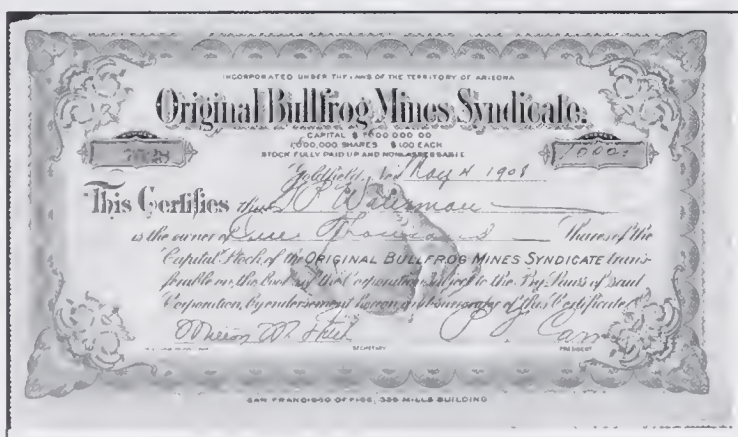 INCORPORATED UNDER THE LAWS OF THE TERRITORY OF ARIZONA
Original Bullfrog Mines Syndicate.
CAPITAL $1,000,000.00
1,000,000 SHARES $1.00 EACH
STOCK FULLY PAID UP AND NON-ASSESSABLE
1000
Goldfield, May 4 1908
This Certifies that Waterman
is the owner of One Thousand Shares of the
Capital Stock of the ORIGINAL BULLFROG MINES SYNDICATE trans-
ferable on the books of the Corporation subject to the By Laws of said
Corporation, by endorsement hereon and surrender of this Certificate
SECRETARY PRESIDENT
SAN FRANCISCO OFFICE, MILLS BUILDING